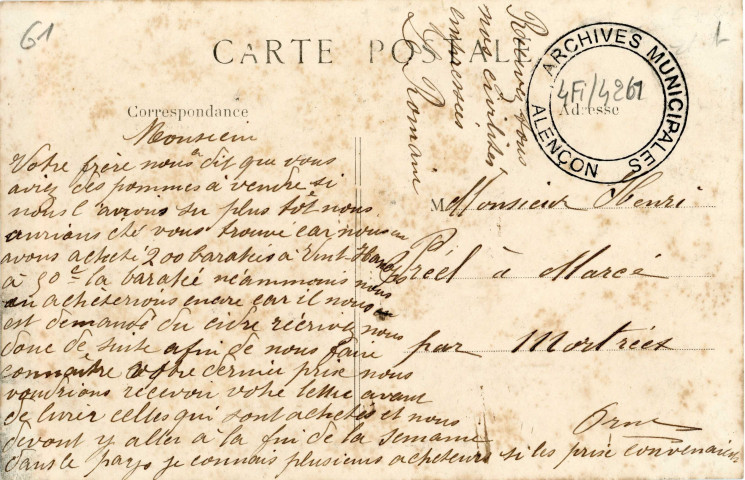 61
CARTE POSTALE
Correspondance
Adresse
ARCHIVES MUNICIPALES
ALENÇON
4Fi/4261
Monsieur
Votre frère nous a dit que vous
aviez des pommes à vendre si
nous l'avions su plus tôt nous
aurions été vous trouve car nous en
avons acheté 200 baratées à Vint
à 50c la baratée néammouis nous
en acheterions encre car il nous en
est demandé du cidre récrivez nous
donc de suite afin de nous faire
connaître votre dernier prise nous
voudrions recevoir votre lettre avant
de livrer celles qui sont achetés et nous
devont y aller a la fin de la semaine
dans le pays je connais plusieurs acheteurs si les prise convenaient
Recevez tous
nos civilités
empressées
Romain
M Monsieur Henri
Préel à Marcé
par Mortrées
Orne